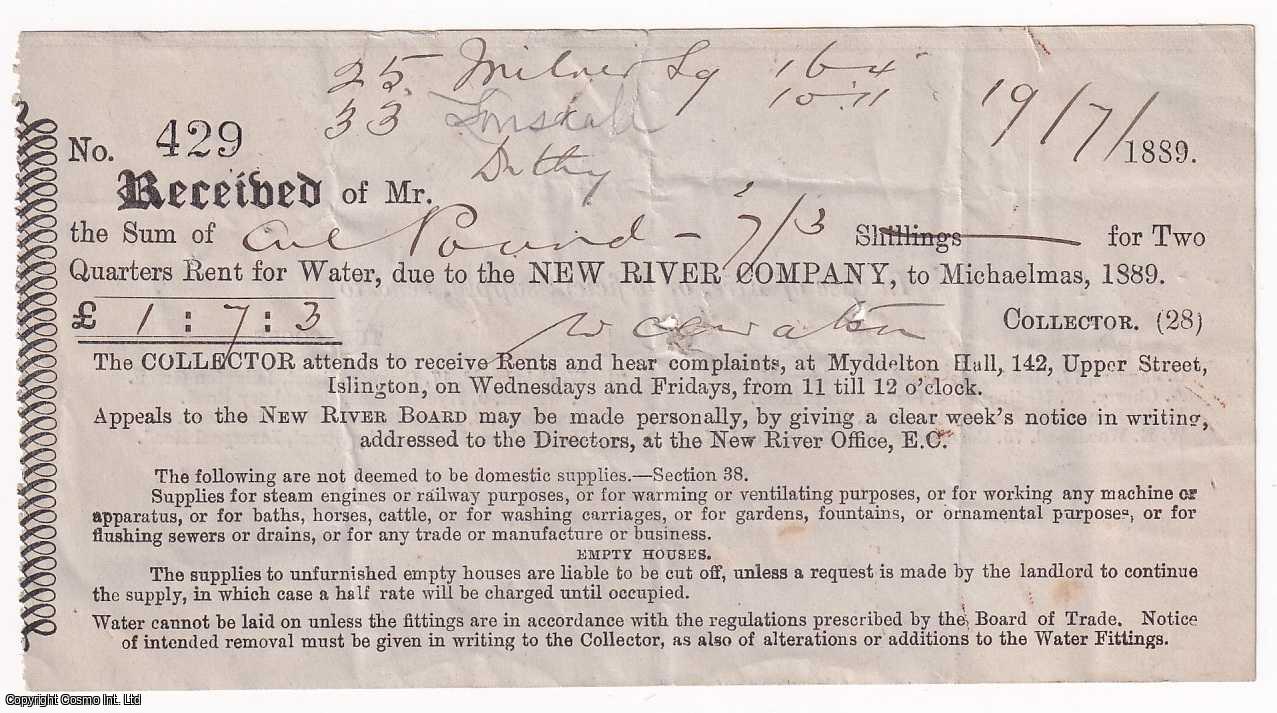 25 Milner Sq 16-4
33 Lonsdale 10-11
19/7/1889.
No. 429
Received of Mr.
the Sum of One Pound - 7/3 Shillings for Two
Quarters Rent for Water, due to the NEW RIVER COMPANY, to Michaelmas, 1889.
£ 1 : 7 : 3 COLLECTOR. (28)
The COLLECTOR attends to receive Rents and hear complaints, at Myddelton Hall, 142, Upper Street,
Islington, on Wednesdays and Fridays, from 11 till 12 o'clock.
Appeals to the NEW RIVER BOARD may be made personally, by giving a clear week's notice in writing,
addressed to the Directors, at the New River Office, E.C.
The following are not deemed to be domestic supplies.—Section 38.
Supplies for steam engines or railway purposes, or for warming or ventilating purposes, or for working any machine or
apparatus, or for baths, horses, cattle, or for washing carriages, or for gardens, fountains, or ornamental purposes, or for
flushing sewers or drains, or for any trade or manufacture or business.
EMPTY HOUSES.
The supplies to unfurnished empty houses are liable to be cut off, unless a request is made by the landlord to continue
the supply, in which case a half rate will be charged until occupied.
Water cannot be laid on unless the fittings are in accordance with the regulations prescribed by the Board of Trade. Notice
of intended removal must be given in writing to the Collector, as also of alterations or additions to the Water Fittings.
Copyright Cosmo Int. Ltd